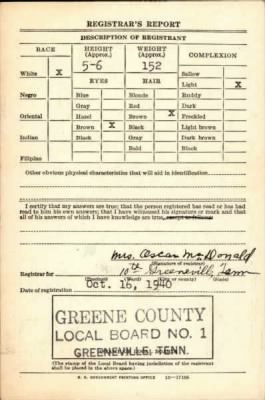 REGISTRAR'S REPORT
DESCRIPTION OF REGISTRANT
RACE HEIGHT (Approx.) WEIGHT (Approx.) COMPLEXION
5-6 152
White X Sallow
EYES HAIR Light X
Negro Blue Blonde Ruddy
Gray Red Dark
Oriental Hazel Brown X Freckled
Brown X Black Light brown
Indian Black Gray Dark brown
Bald Black
Filipino
Other obvious physical characteristics that will aid in identification
I certify that my answers are true; that the person registered has read or has had read to him his own answers; that I have witnessed his signature or mark and that all of his answers of which I have knowledge are true, except as follows:
Mrs. Oscar McDonald
(Signature of registrar)
Registrar for 10th Greeneville, Tenn
(Precinct) (City or county) (State)
Date of registration Oct. 16, 1940
GREENE COUNTY
LOCAL BOARD NO. 1
GREENEVILLE, TENN.
(The stamp of the Local Board having jurisdiction of the registrant
shall be placed in the above space.)
U. S. GOVERNMENT PRINTING OFFICE 16-17105